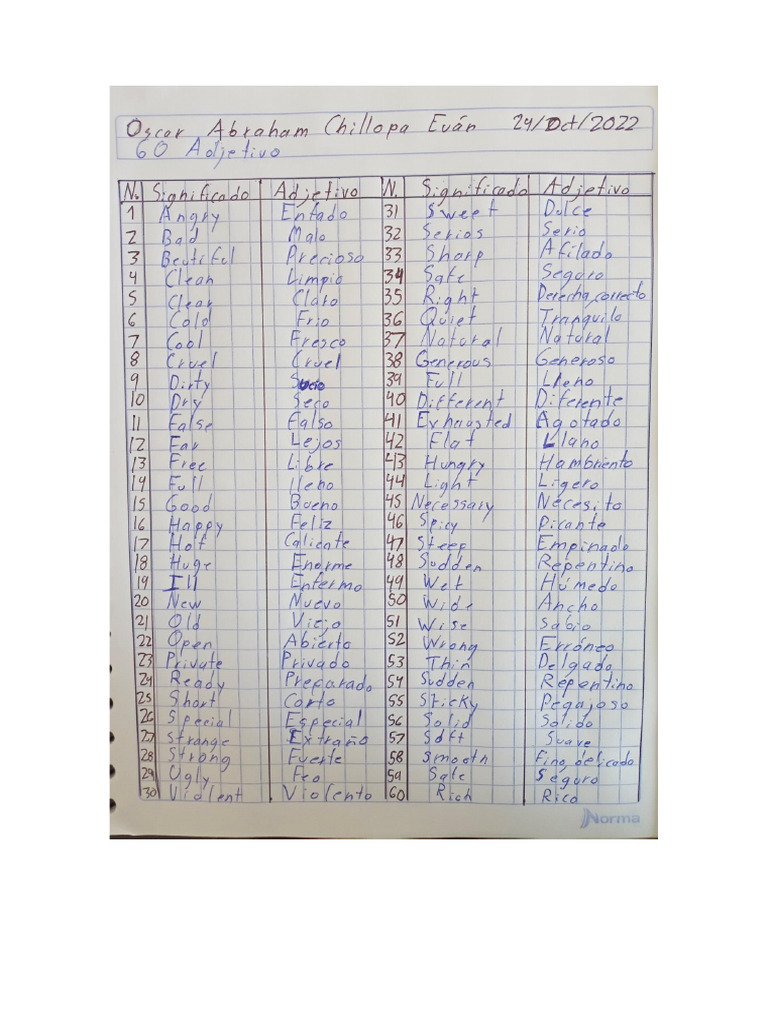 Oscar Abraham Chillopa Euán 24/Oct/2022
60 Adjetivo
No. Significado Adjetivo N. Significado Adjetivo
1 Angry Enfado 31 Sweet Dulce
2 Bad Malo 32 Serios Serio
3 Beutiful Precioso 33 Sharp Afilado
4 Clean Limpio 34 Safe Seguro
5 Clear Claro 35 Right Derecha, correcto
6 Cold Frio 36 Quiet Tranquilo
7 Cool Fresco 37 Natural Natural
8 Cruel Cruel 38 Generous Generoso
9 Dirty Sucio 39 Full Lleno
10 Dry Seco 40 Different Diferente
11 False Falso 41 Exhausted Agotado
12 Far Lejos 42 Flat Llano
13 Free Libre 43 Hungry Hambriento
14 Full lleno 44 Light Ligero
15 Good Bueno 45 Necessary Necesito
16 Happy Feliz 46 Spicy Picante
17 Hot Caliente 47 Steep Empinado
18 Huge Enorme 48 Sudden Repentino
19 Ill Enfermo 49 Wet Húmedo
20 New Nuevo 50 Wide Ancho
21 Old Viejo 51 Wise Sabio
22 Open Abierto 52 Wrong Erróneo
23 Private Privado 53 Thin Delgado
24 Ready Preparado 54 Sudden Repentino
25 Short Corto 55 Sticky Pegajoso
26 Special Especial 56 Solid Solido
27 Strange Extraño 57 Soft Suave
28 Strong Fuerte 58 Smooth Fino, delicado
29 Ugly Feo 59 Safe Seguro
30 Violent Violento 60 Rich Rico
Norma